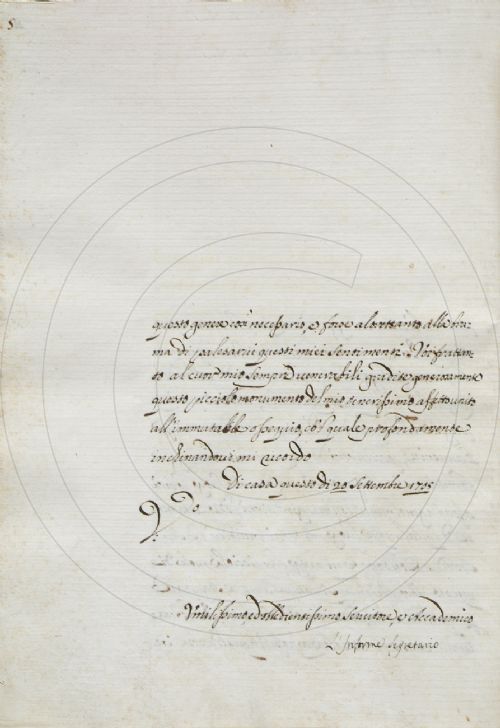 5
questo genere così necessario, e forse al
ma di palesarvi questi miei sentimenti. Voi frattan-
to al cuor mio sempre venerabili gradite generosamente
questo picciolo monumento del mio tenerissimo affetto unito
all'immutabile ossequio, col quale profondamente
inchinandovi mi ricordo
Di casa questo dì 29 Settembre 1795
Umilissimo ed obbedientissimo Servitore, e Accademico
L'Informe Segretario